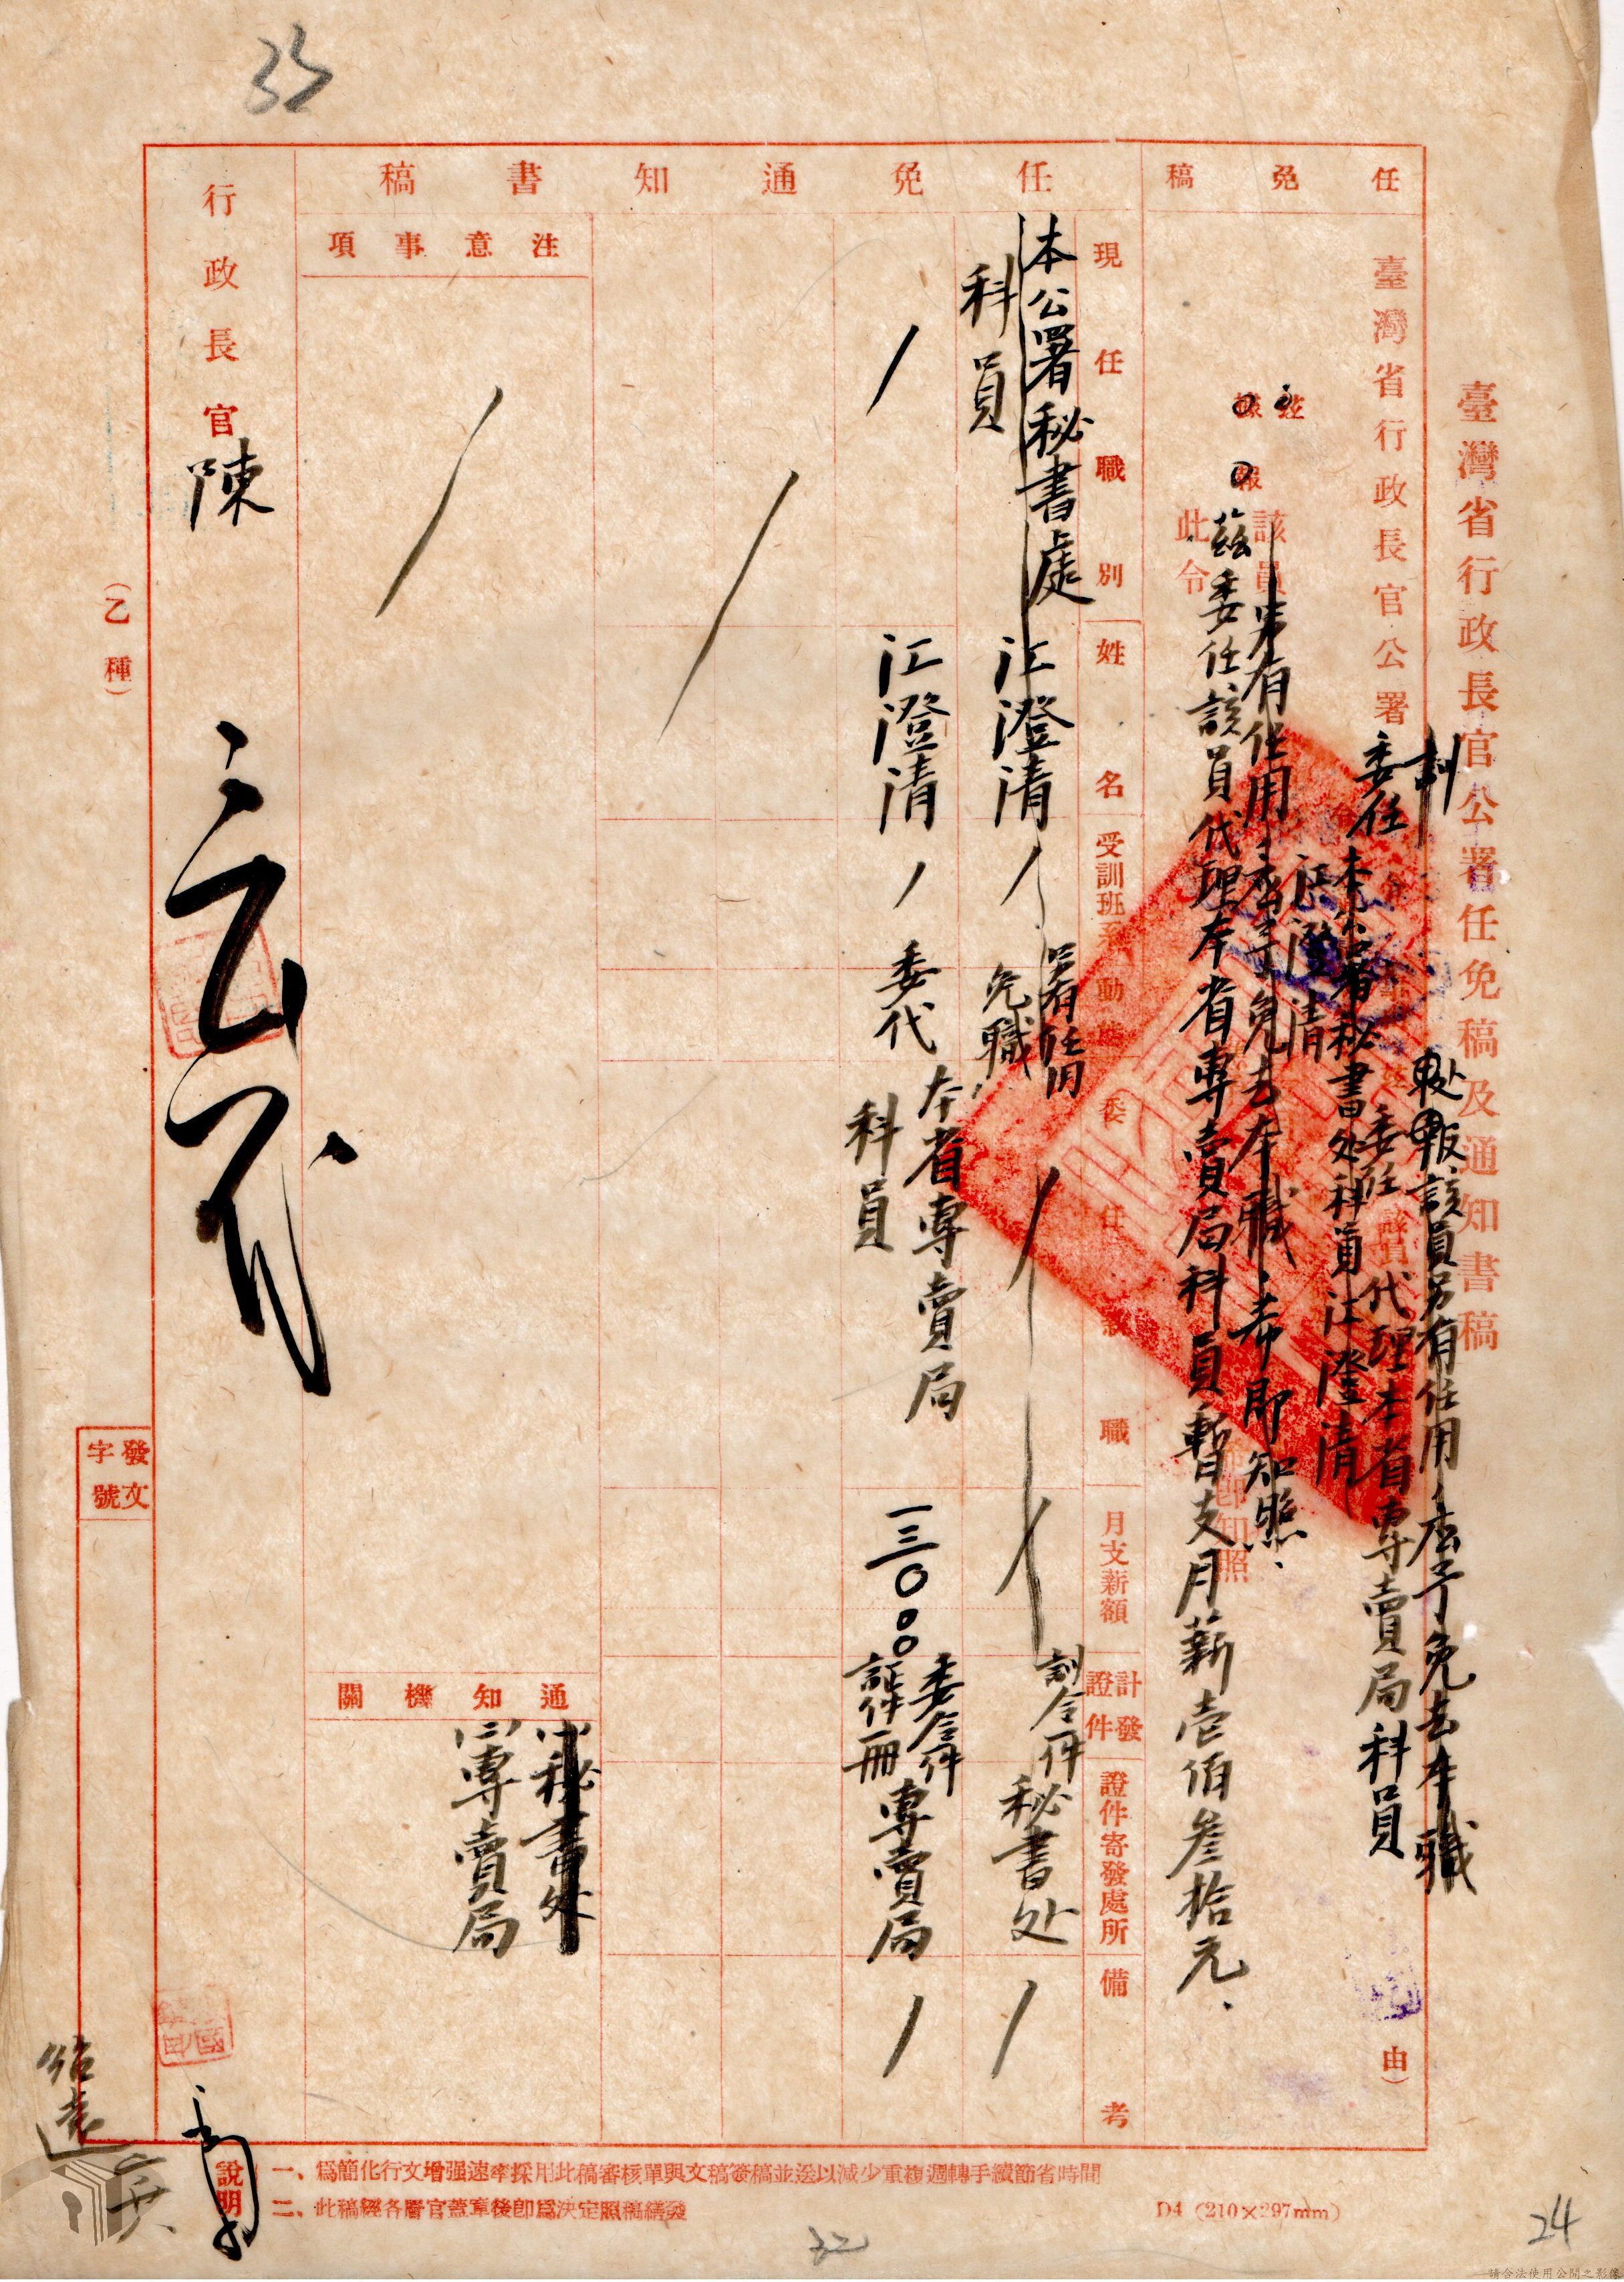 35
臺灣省行政長官公署任免稿及通知書稿
任免稿
訓
報該員另有任用應予免去本職
臺灣省行政長官公署
委任
委任
該員
代理本省專賣局科員
由)
本公署秘書处科員江澄清
江澄清
茲
據
報
該員另有任用應予免去本職、希即知照、
茲委任該員代理本省專賣局科員暫支月薪壹佰叁拾元、
此令
即知照
任免通知書稿
現任職別
姓名
受訓班系
動
委任
職
月支薪額
計發證件
證件寄發處所
備考
本公署秘書處
科員
江澄清
另有任用
免職
訓令一件
秘書处
江澄清
委代
本省專賣局
科員
一三〇.〇〇
委令一件
證件一冊
專賣局
注意事項
通知機關
秘書处
專賣局
行政長官陳
(乙種)
發文
字號
說明
一、爲簡化行文增强速率採用此稿審核單與文稿簽稿並送以減少重複週轉手續節省時間
二、此稿經各層官蓋章後卽爲決定照稿繕發
D4 (210×297mm)
32
24
請合法使用公開之影像